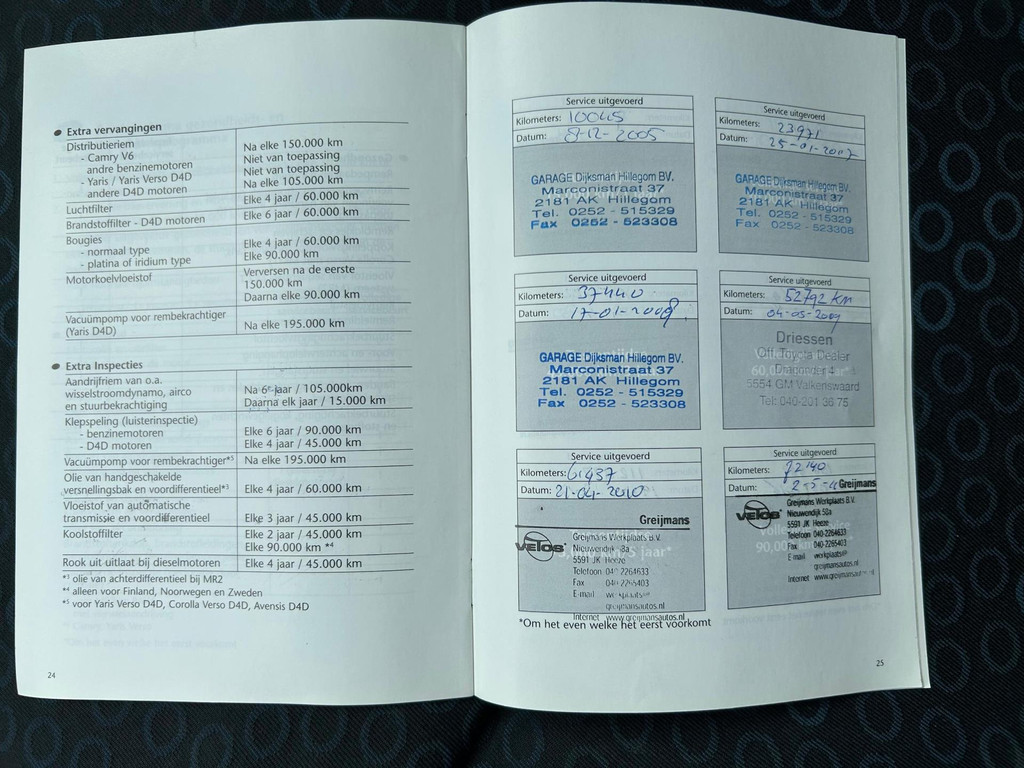 Extra vervangingen
Distributieriem
- Camry V6 Na elke 150.000 km
andre benzinemotoren Niet van toepassing
- Yaris / Yaris Verso D4D Niet van toepassing
andere D4D motoren Na elke 105.000 km
Luchtfilter Elke 4 jaar / 60.000 km
Brandstoffilter - D4D motoren Elke 6 jaar / 60.000 km
Bougies
- normaal type Elke 4 jaar / 60.000 km
- platina of iridium type Elke 90.000 km
Motorkoelvloeistof Verversen na de eerste
150.000 km
Daarna elke 90.000 km
Vacuümpomp voor rembekrachtiger
(Yaris D4D) Na elke 195.000 km
Extra Inspecties
Aandrijfriem van o.a.
wisselstroomdynamo, airco Na 6e jaar / 105.000km
en stuurbekrachtiging Daarna elk jaar / 15.000 km
Klepspeling (luisterinspectie)
- benzinemotoren Elke 6 jaar / 90.000 km
- D4D motoren Elke 4 jaar / 45.000 km
Vacuümpomp voor rembekrachtiger*5 Na elke 195.000 km
Olie van handgeschakelde
versnellingsbak en voordifferentieel*3 Elke 4 jaar / 60.000 km
Vloeistof van automatische
transmissie en voordifferentieel Elke 3 jaar / 45.000 km
Koolstoffilter Elke 2 jaar / 45.000 km
Elke 90.000 km *4
Rook uit uitlaat bij dieselmotoren Elke 4 jaar / 45.000 km
*3 olie van achterdifferentieel bij MR2
*4 alleen voor Finland, Noorwegen en Zweden
*5 voor Yaris Verso D4D, Corolla Verso D4D, Avensis D4D
24
Service uitgevoerd
Kilometers: 10045
Datum: 8-12-2005
GARAGE Dijksman Hillegom BV.
Marconistraat 37
2181 AK Hillegom
Tel. 0252 - 515329
Fax 0252 - 523308
Service uitgevoerd
Kilometers: 23971
Datum: 25-01-2007
GARAGE Dijksman Hillegom BV.
Marconistraat 37
2181 AK Hillegom
Tel. 0252 - 515329
Fax 0252 - 523308
Service uitgevoerd
Kilometers: 37440
Datum: 17-01-2008
GARAGE Dijksman Hillegom BV.
Marconistraat 37
2181 AK Hillegom
Tel. 0252 - 515329
Fax 0252 - 523308
Service uitgevoerd
Kilometers: 52792 km
Datum: 04-05-2009
Driessen
Off. Toyota Dealer
4
5554 GM Valkenswaard
Tel: 040-201 36 75
Service uitgevoerd
Kilometers: 61437
Datum: 21-04-2010
Greijmans
VELOS
Greijmans Werkplaats B.V.
Nieuwendijk
5591 JK Heeze
Telefoon 040-2264633
Fax 040-2265403
E-mail
greijmansautos.nl
Internet www.greijmansautos.nl
Service uitgevoerd
Kilometers: 72140
Datum: 2-5-
Greijmans
VELOS
Greijmans Werkplaats B.V.
Nieuwendijk
5591 JK Heeze
Telefoon 040-2264633
Fax 040-2265403
E-mail werkplaats@
greijmansautos.nl
Internet www.greijmansautos.nl
*Om het even welke het eerst voorkomt
25